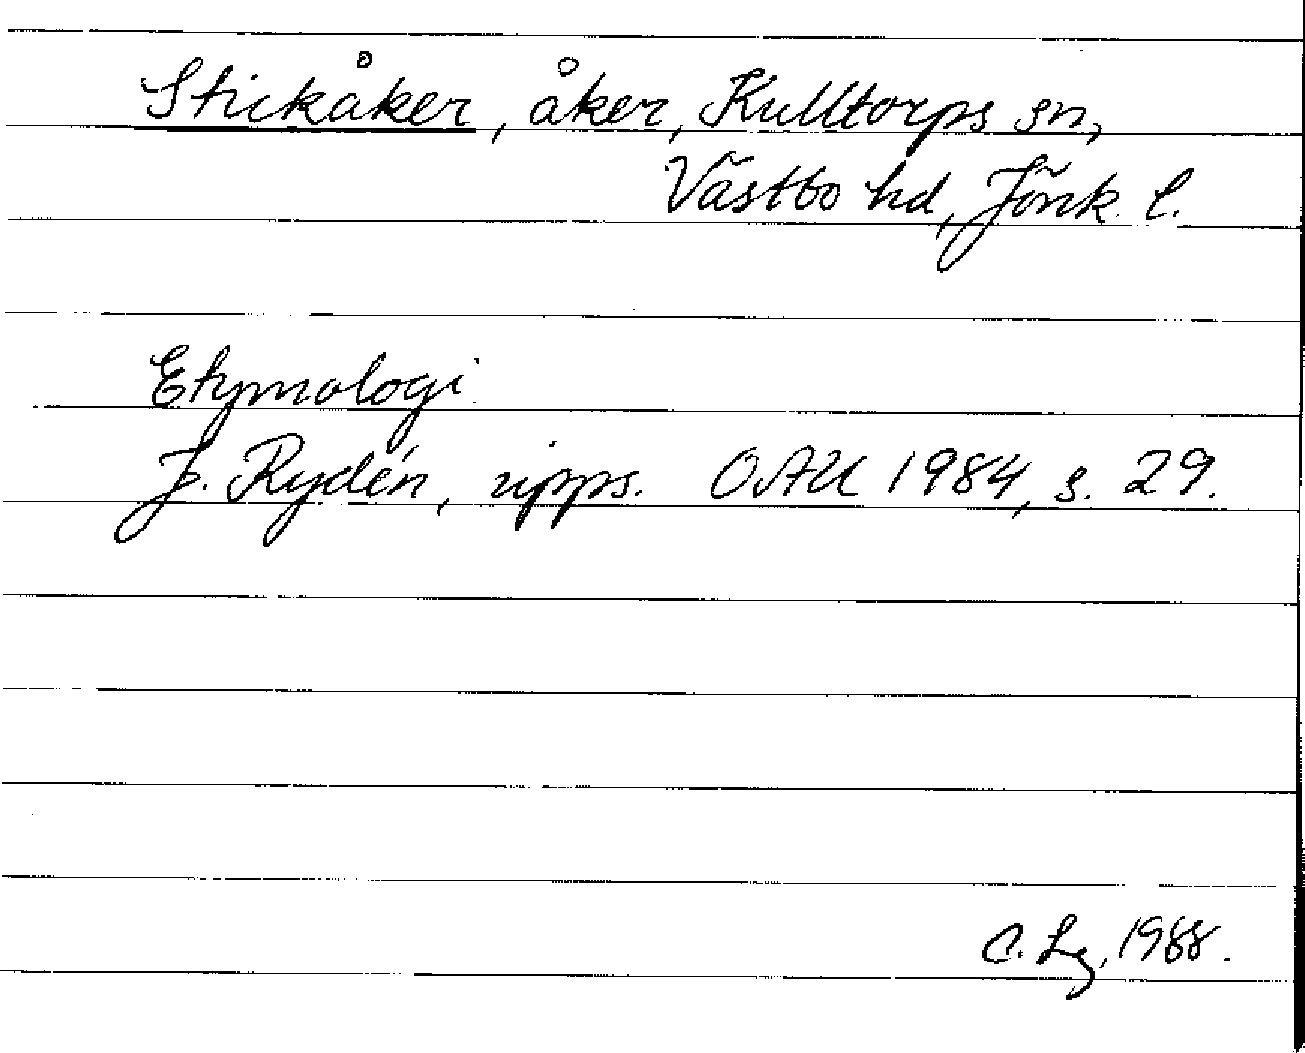 Stickåker, åker, Kulltorps sn,
Västbo hd, Jönk. l.
Etymologi
J. Rydén, upps. OAU 1984, s. 29.
C. Lg, 1988.